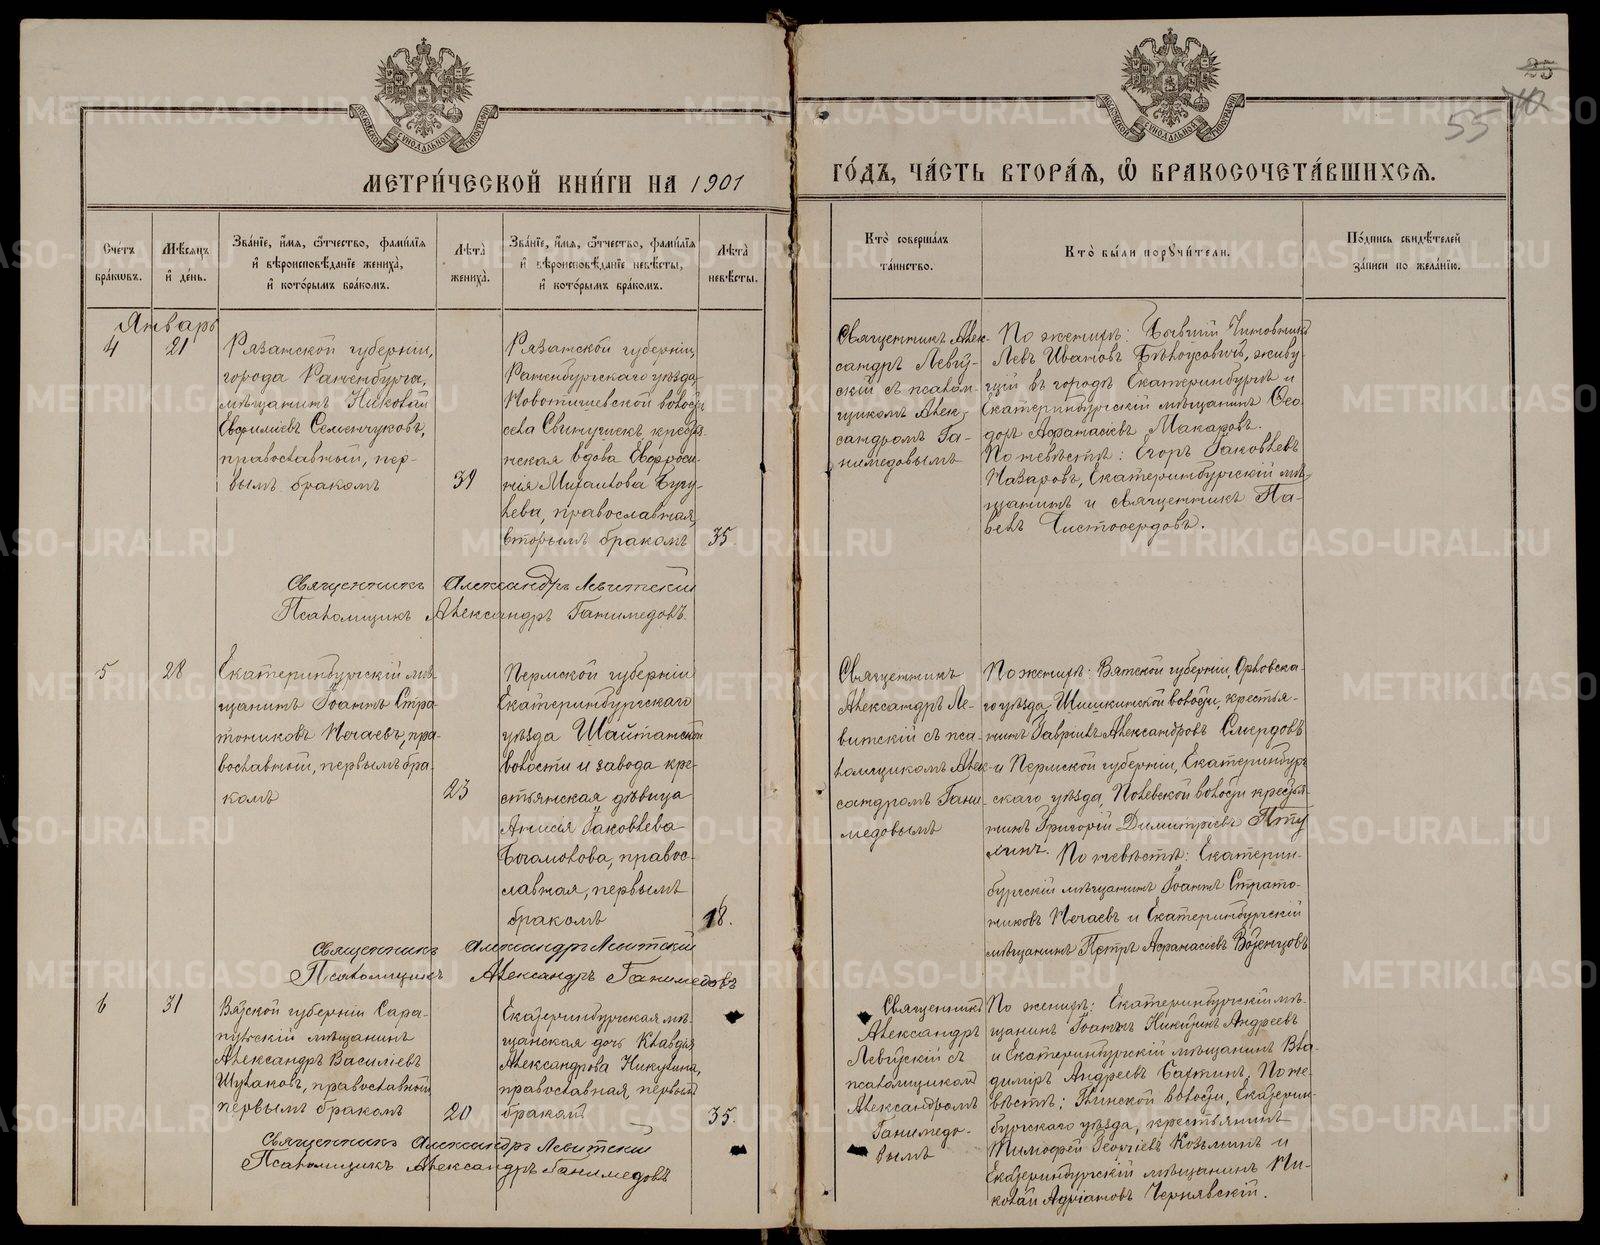 МЕТРИ́ЧЕСКОЙ КНИ́ГИ НА 1901
ГО́ДЪ, ЧА́СТЬ ВТОРА́Я, Ѿ БРАКОСОЧЕТА́ВШИХСЯ.
25
55
Сче́тъ бра́кѡвъ.
Мѣ́сяцъ и̂ де́нь.
Зва́нїе, и̂́мя, ѻ̂́тчество, фами́лїя
и̂ вѣроисповѣ́данїе жениха̀,
и̂ кото́рымъ бра́комъ.
Лѣта̀ жениха̀.
Зва́нїе, и̂́мя, ѻ̂́тчество, фами́лїя
и̂ вѣроисповѣ́данїе невѣ́сты,
и̂ кото́рымъ бра́комъ.
Лѣта̀ невѣ́сты.
Кто̀ соверша́лъ та́инство.
Кто̀ бы́ли порꙋчи́тели.
По́дпись свидѣ́телей
за́писи по жела́нїю.
Январь
4
21
Рязанской губерніи,
города Раненбурга,
мѣщанинъ Николай
Евфиміевъ Семенчуковъ,
православный, пер-
вымъ бракомъ
39
Рязанской губерніи,
Раненбургскаго уѣзда,
села Свинушекъ, крестья-
нская вдова Евфроси-
нія Михаилова Бугу-
лева, православная,
вторымъ бракомъ
35.
Священникъ Алек-
сандръ Левит-
скій съ псалом-
щикомъ Алек-
сандромъ Га-
нимедовымъ
По женихѣ: Бывшій Чиновникъ
Левъ Ивановъ Бѣлоусовичъ, живу-
щій въ городѣ Екатеринбургѣ и
Екатеринбургскій мѣщанинъ Ѳео-
доръ Афанасіевъ Макаровъ.
По невѣстѣ: Егоръ Іаковлевъ
Назаровъ, Екатеринбургскій мѣ-
щанинъ и священникъ Па-
велъ Чистосердовъ.
Священникъ Александръ Левитскій
Псаломщикъ Александръ Ганимедовъ.
5
28
Екатеринбургскій мѣ-
щанинъ Іоаннъ Стра-
тониковъ Нечаевъ, пра-
вославный, первымъ бра-
комъ
23
Пермской губерніи
Екатеринбургскаго
уѣзда Шайтанской
волости и завода кре-
стьянская дѣвица
Анисія Іаковлева
Богомолова, правос-
лавная, первымъ
бракомъ
18.
Священникъ
Александръ Ле-
витскій съ пса-
ломщикомъ Алек-
сандромъ Гани-
медовымъ
По женихѣ: Вятской губерніи, Орловска-
го уѣзда, Шишкинской волости, крестья-
нинъ Гавріилъ Александровъ Смердовъ
и Пермской губерніи, Екатеринбург-
скаго уѣзда, Полевской волости крестья-
нинъ Григорій Димитріевъ Пту
хинъ. По невѣстѣ: Екатерин-
бургскій мѣщанинъ Іоаннъ Страто-
никовъ Нечаевъ и Екатеринбургскій
мѣщанинъ Петръ Афанасіевъ
Священникъ Александръ Левитскій
Псаломщикъ Александръ Ганимедовъ
6
31
Вятской губерніи Сара-
пульскій мѣщанинъ
Александръ Василіевъ
Шулаковъ, православный,
первымъ бракомъ
20
Екатеринбургская мѣ-
щанская дочь Клавдія
Александрова Никитина,
православная, первымъ
бракомъ
35.
Священникъ
Александръ
Левитскій съ
псаломщикомъ
Александромъ
Ганимедо-
вымъ
По женихѣ: Екатеринбургскій мѣ-
щанинъ Іоаннъ Никитинъ Андреевъ
и Екатеринбургскій мѣщанинъ Вла-
димiръ Андреевъ По не-
вѣстѣ: волости, Екатерин-
бургскаго уѣзда, крестьянинъ
Тимофей Георгіевъ Козьминъ и
Екатеринбургскій мѣщанинъ Ни-
колай Адріановъ Чернявскій.
Священникъ Александръ Левитскій
Псаломщикъ Александръ Ганимедовъ
METRIKI.GASO-URAL.RU